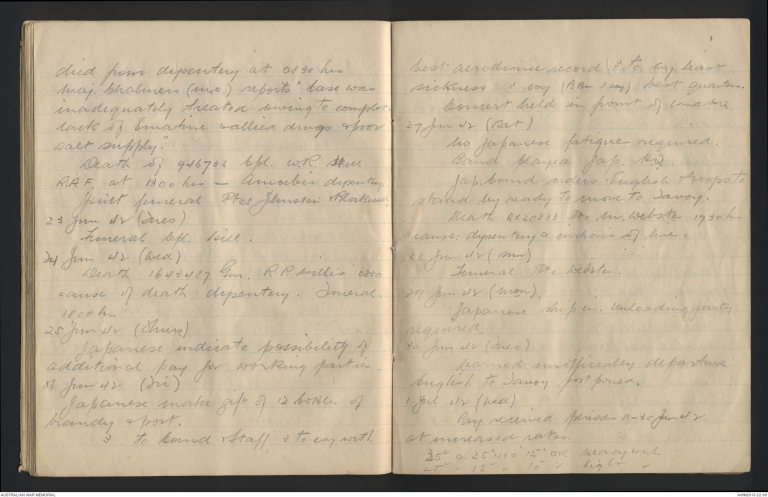 died from dysentery at 0830 hrs
Maj. Chalmers (M.O.) reports "case was
inadequately treated owing to complete
lack of Emetine & allied drugs & poor
salt supply.
Death of Cpl. W.R.
R.A.F. at 1300 hrs — Amoebic dysentery
Joint funeral Ptes Johnston &
23 Jun 42 (Tues)
Funeral Cpl.
24 Jun 42 (Wed)
Death Gnr. R.R. Willis 0830
cause of death dysentery. Funeral
1800 hrs
25 Jun 42 (Thurs)
Japanese indicate possibility of
additional pay for working parties.
26 Jun 42 (Fri)
Japanese make gift of 12 bottles of
brandy & port.
3 to Comd & Staff, 2 to coy with
best aerodrome record, 3 to coy least
sickness, 3 coy best quarters.
Concert held in front of
27 Jun 42 (Sat)
No Japanese fatigue required.
Band played Jap. H.Q.
Jap. Comd orders English troops to
stand by ready to move to Tavoy.
Death Pte Webster 1930 hrs
cause: dysentery & cirrhosis of liver.
28 Jun 42 (Sun)
Funeral Pte Webster.
29 Jun 42 (Mon)
Japanese ship in. Unloading party
required.
30 Jun 42 (Tues)
Learned unofficially departure
English to Tavoy postponed.
1 Jul 42 (Wed)
Pay received period 30 Jun 42
at increased rates
35c 25c NCO 15c OR heavy work
25c " 15c " 10c " light "
AUSTRALIAN WAR MEMORIAL